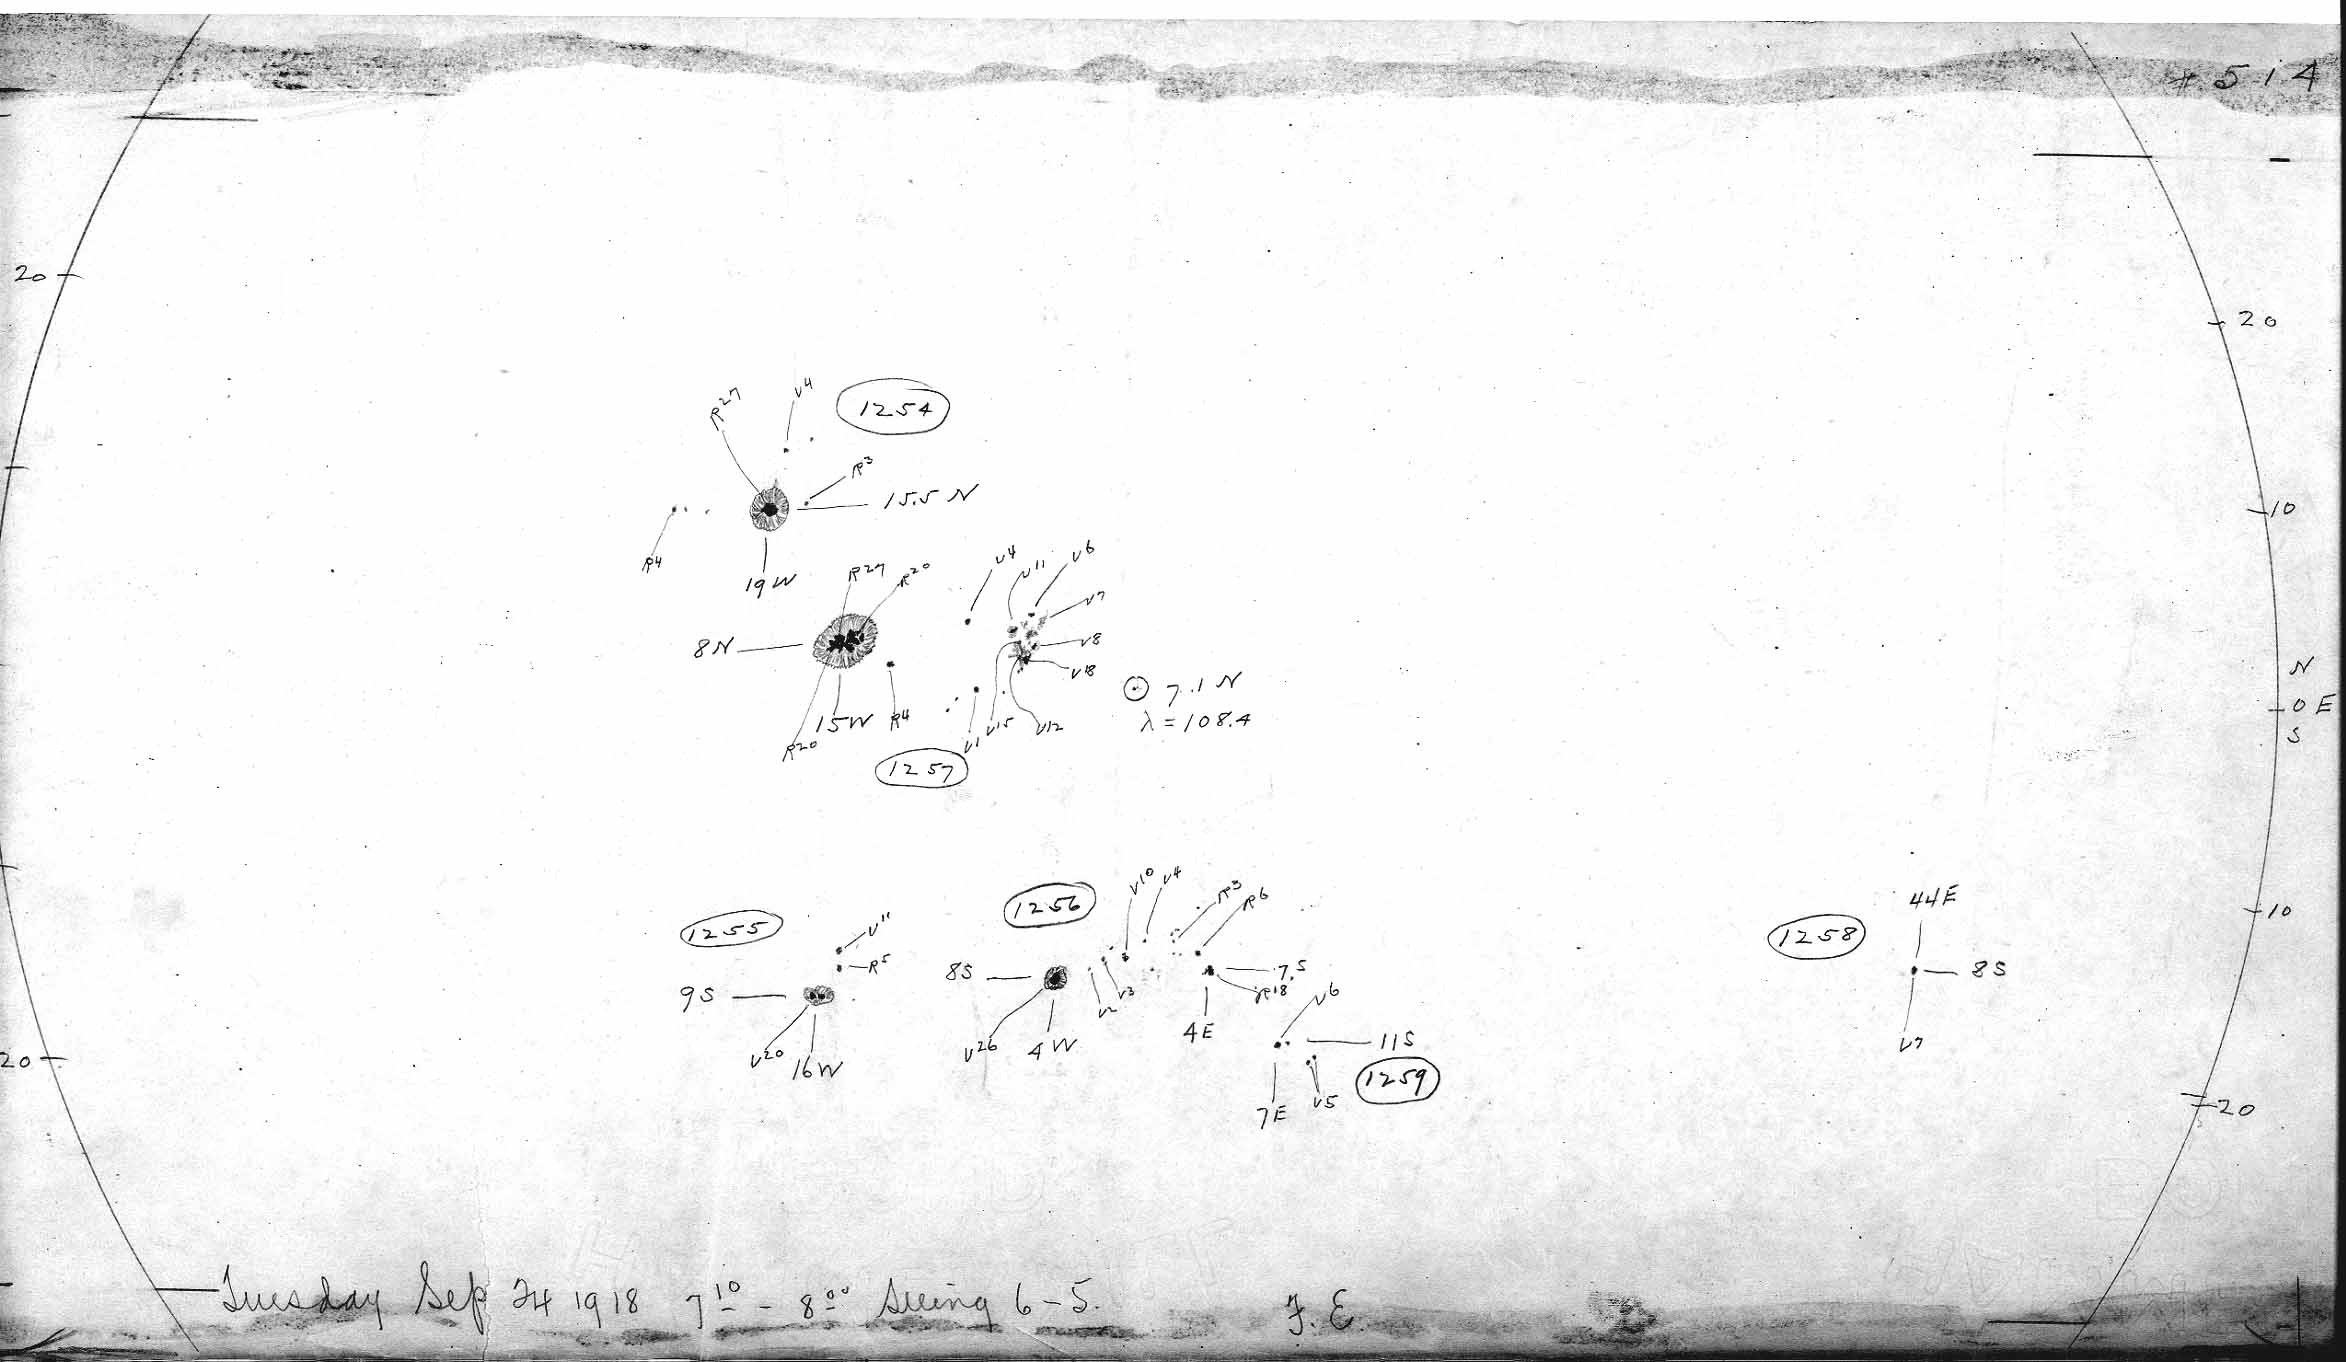 # 514
20
20
V4
R27
1254
R3
15.5 N
10
R4
19W
R27
R20
V4
V11
V6
V7
8N
V8
V18
N
0 E
S
7.1 N
λ = 108.4
15W
R4
R20
V1
V15
V12
1257
V10
V4
R3
R6
44E
1256
10
1255
V11
1258
R5
8S
7.S
8S
9S
R18
V2
V3
V6
4E
V20
16W
V26
4W
11S
V7
20
1259
7E
V5
20
Tuesday Sep 24 1918 7 10 - 8 00 Seeing 6-5.
F. E.